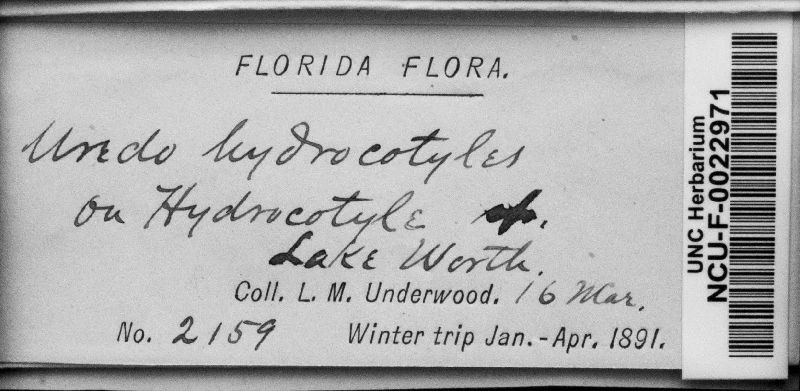 FLORIDA FLORA.
Uredo hydrocotyles
on Hydrocotyle sp.
Lake Worth.
Coll. L. M. Underwood. 16 Mar.
No. 2159 Winter trip Jan.-Apr. 1891.
UNC Herbarium
NCU-F-0022971